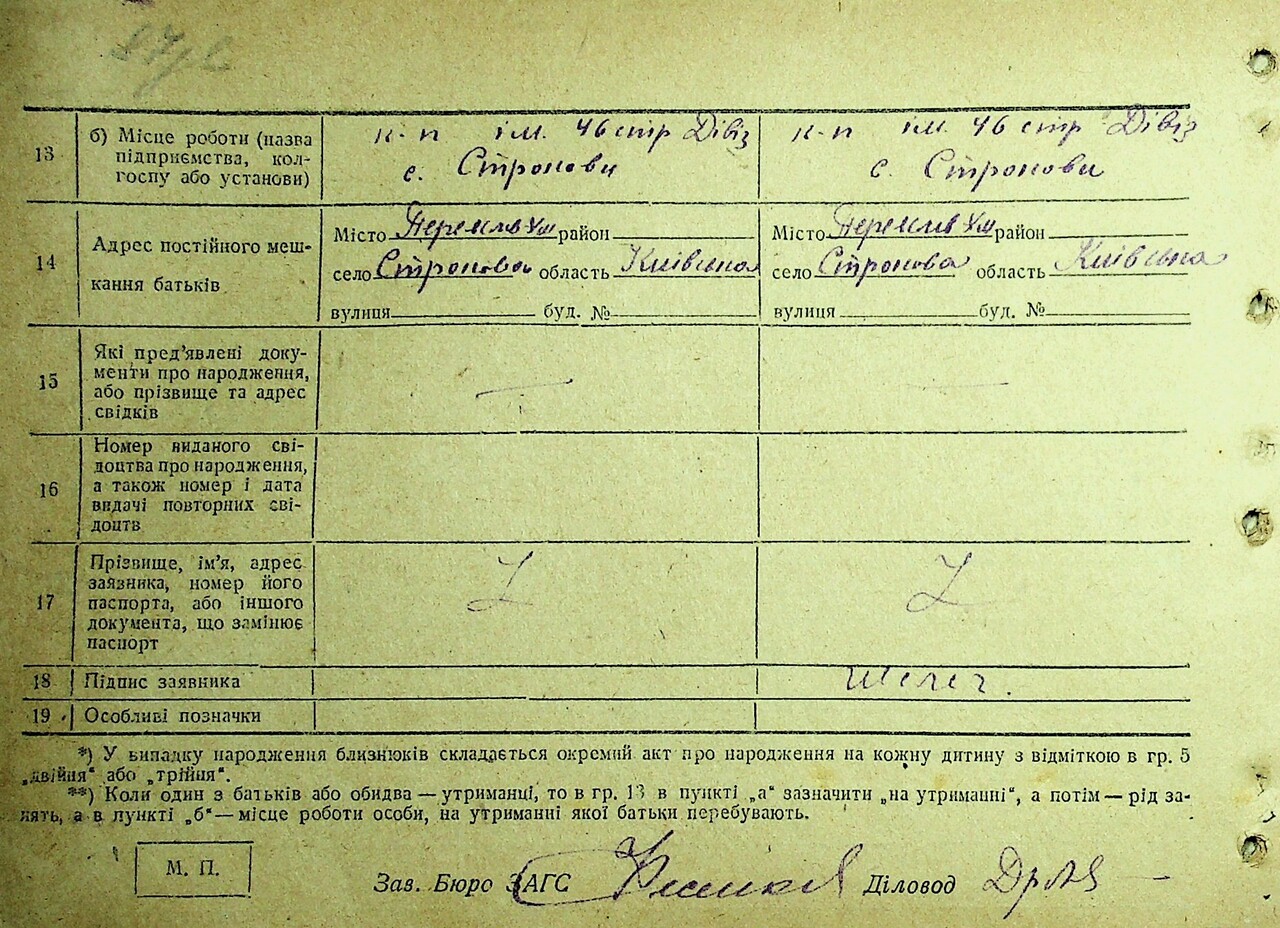 13
б) Місце роботи (назва
підприємства, кол-
госпу або установи)
к-п ім. 46 стр Дівіз
с. Строкови
к-п ім. 46 стр Дівіз
с. Строкови
14
Адрес постійного меш-
кання батьків
Місто район
село Строкова область Київська
вулиця буд. №
Місто район
село Строкова область Київська
вулиця буд. №
15
Які пред’явлені доку-
менти про народження,
або прізвище та адрес
свідків
16
Номер виданого сві-
доцтва про народження,
а також номер і дата
видачі повторних сві-
доцтв
17
Прізвище, ім’я, адрес
заязника, номер його
паспорта, або іншого
документа, що замінює
паспорт
18
Підпис заявника
19
Особливі позначки
*) У випадку народження близнюків складається окремий акт про народження на кожну дитину з відміткою в гр. 5
„двійня“ або „трійня“.
**) Коли один з батьків або обидва — утриманці, то в гр. 13 в пункті „а“ зазначити „на утриманні“, а потім — рід за-
нять, а в пункті „б“ — місце роботи особи, на утриманні якої батьки перебувають.
М. П.
Зав. Бюро ЗАГС
Діловод